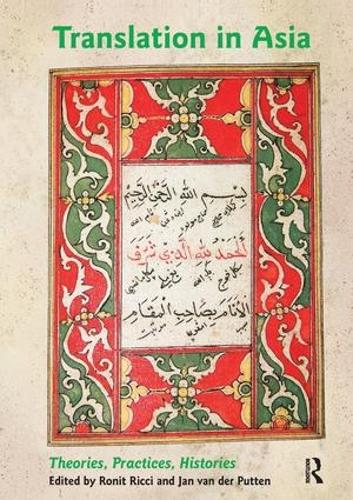 Translation in Asia
بسم الله الرحمن الرحيم
الحمد لله الذي شرف
الأنام بصاحب المقام
Theories, Practices, Histories
Edited by Ronit Ricci and Jan van der Putten
R